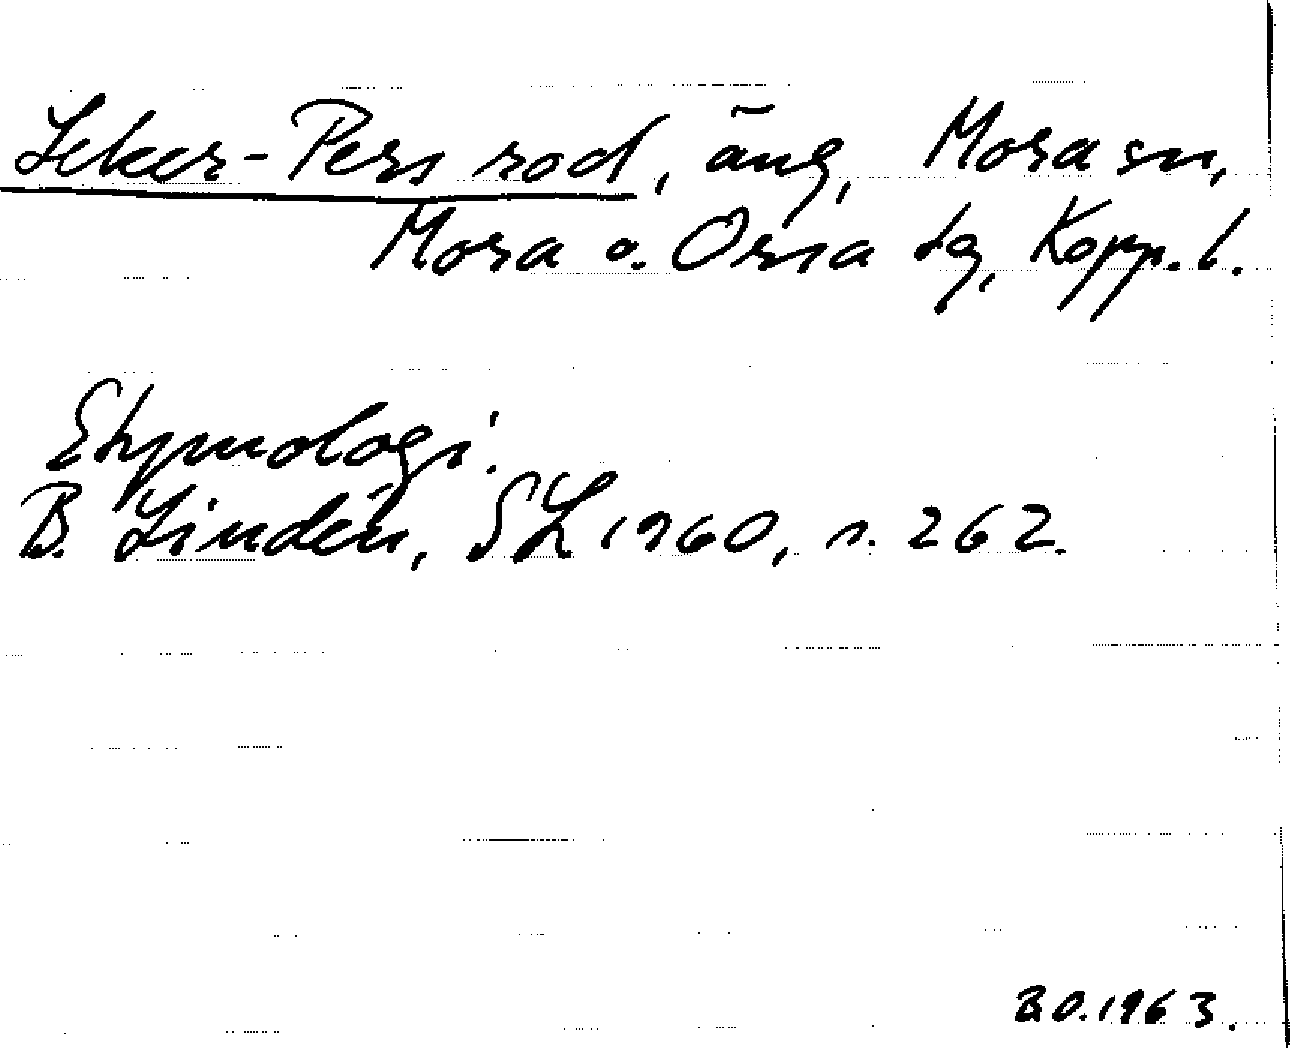 Leker-Pers rod, äng, Mora sn,
Mora o. Orsa tg, Kopp. l.
Etymologi:
B. Lindén, SL 1960, s. 262.
B.O. 1963.